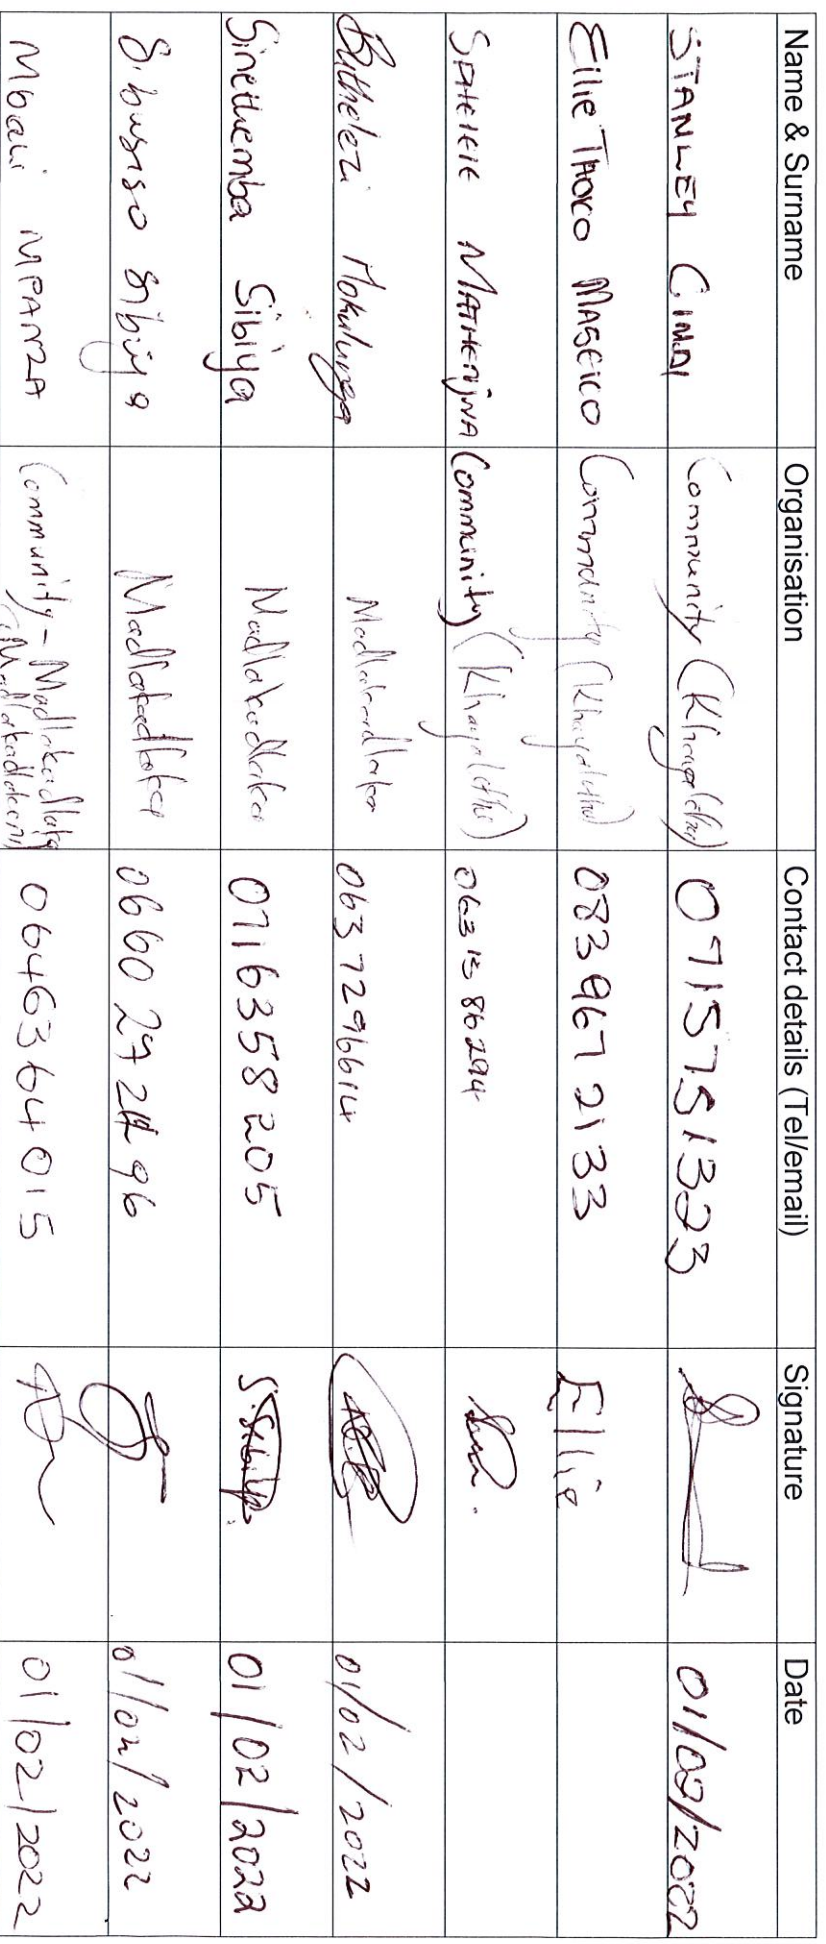 Name & Surname Organisation Contact details (Tel/email) Signature Date
STANLEY CINDI Community (Khayalethu) 0715751323 01/02/2022
Ellie THOKO MASEKO Community (Khayalethu) 083 967 2133 Ellie
SPHEKE MATHENJWA Community (Khayalethu) 063 13 86294
Buthelezi Nokulunga Madlakadlaka 063 7296614 01/02/2022
Sinethemba Sibiya Madlakadlaka 0716358205 S.Sibiya 01/02/2022
Sibusiso Sibiya Madlakadlaka 0660 27 2496 01/02/2022
Mbali MPANZA Community - Madlakadlaka
(Madlakadleni)
0646364015 01/02/2022